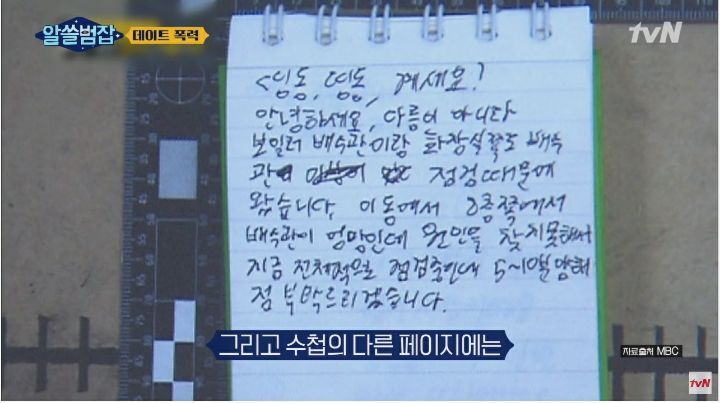 알쓸범잡 데이트 폭력
tvN
<띵동, 띵동, 계세요?
안녕하세요, 다름이 아니라
보일러 배수관이랑 화장실쪽도 배수
관 점검 때문에
왔습니다. 이동에서 2층쪽에서
배수관이 엉망인데 원인을 찾지못해서
지금 전체적으로 점검중인데 5~10분 양해
점 부탁드리겠습니다.
그리고 수첩의 다른 페이지에는
자료출처 MBC
tvN